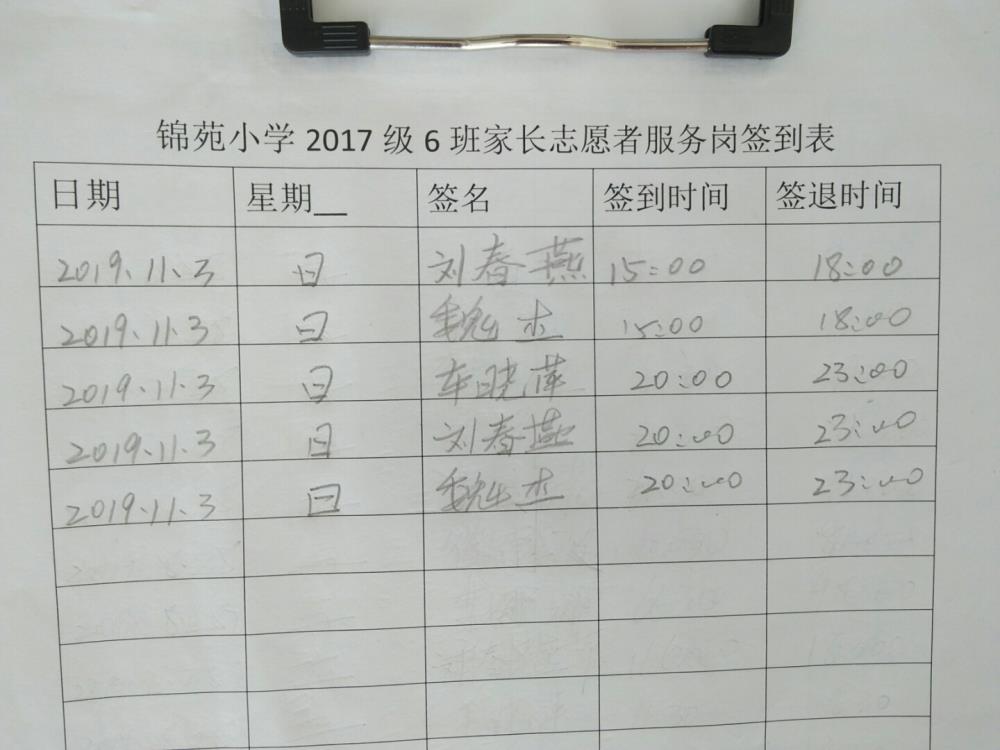 锦苑小学2017级6班家长志愿者服务岗签到表
日期 星期__ 签名 签到时间 签退时间
2019.11.3 日 刘春燕 15:00 18:00
2019.11.3 日 魏杰 15:00 18:00
2019.11.3 日 车晓萍 20:00 23:00
2019.11.3 日 刘春燕 20:00 23:00
2019.11.3 日 魏杰 20:00 23:00